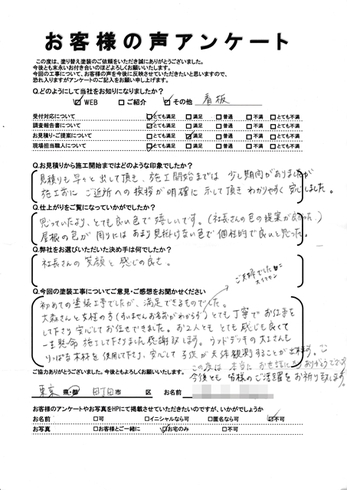 お客様の声アンケート
この度は、塗り替え塗装のご依頼をいただき誠にありがとうございました。
今後とも末永いお付き合いのほどよろしくお願いいたします。
今回の工事について、お客様の声を今後に反映させていただきたいと思いますので、
恐れ入りますがアンケートのご記入をお願い申し上げます。
Q.どのようにして当社をお知りになりましたか?
☑WEB □ご紹介 ☑その他 看板
受付対応について ☑とても満足 □満足 □普通 □不満 □とても不満
調査報告書について ☑とても満足 □満足 □普通 □不満 □とても不満
お見積り・ご提案について □とても満足 ☑満足 □普通 □不満 □とても不満
現場担当職人について ☑とても満足 □満足 □普通 □不満 □とても不満
Q.お見積りから施工開始まではどのような印象でしたか?
見積りも早々と出して頂き、施工開始までは少し期間がありましたが
施工前にご近所への挨拶が明確に示して頂きわかりやすく安心しました。
Q.仕上がりをご覧になっていかがでしたか?
思っていたより、とても良い色で嬉しいです。(社長さんの色の提案が良かった)
屋根の色が周りにはあまり見掛けない色で個性的で良いと思った。
Q.弊社をお選びいただいた決め手は何でしたか?
社長さんの笑顔と感じの良さ。
Q.今回の塗装工事についてご意見・ご感想をお聞かせください
初めての塗装工事でしたが、満足できるものでした。
とても丁寧でお仕事を
して下さり安心してお任せできました。お二人とも とても感じも良くて
一生懸命 施工して下さいました感謝致します。ウッドデッキの大工さんも
りっぱな木材を使用して下さり、安心して
ご協力ありがとうございました。今後ともよろしくお願いいたします。
今後とも 皆様のご活躍をお祈り致します。
東京 都・県 市 区 お名前
お客様のアンケートやお写真をHPにて掲載させていただきたいのですが、いかがでしょうか
お名前 □可 □イニシャルなら可 □匿名なら可 ☑不可
お写真 □お客様とご一緒に ☑お宅のみ □不可